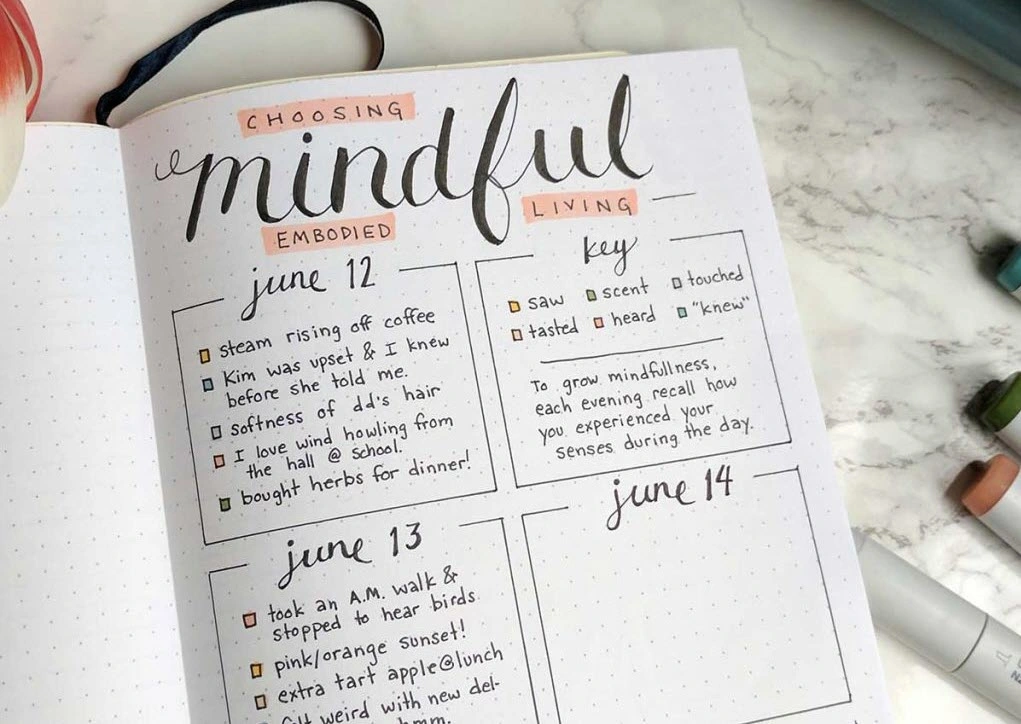 CHOOSING
mindful
EMBODIED
LIVING
june 12
steam rising off coffee
Kim was upset & I knew
before she told me.
softness of dd's hair
I love wind howling from
the hall @ school.
bought herbs for dinner!
key
saw scent touched
tasted heard "knew"
To grow mindfullness,
each evening recall how
you experienced your
senses during the day.
june 13
took an A.M. walk &
stopped to hear birds
pink/orange sunset!
extra tart apple@lunch
weird with new del-
hmm.
june 14